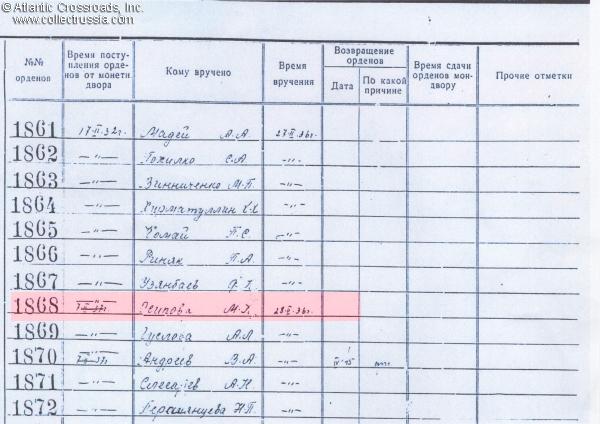 © Atlantic Crossroads, Inc.
www.collectrussia.com
№№ орденов
Время поступления орденов от монетн двора
Кому вручено
Время вручения
Возвращение орденов
Дата
По какой причине
Время сдачи орденов мондвору
Прочие отметки
1861 17.II.32г. Мадей А.А 27.II.36г.
1862 —"— Похилко С.А —"—
1863 —"— Зинниченко М.П. —"—
1864 —"— Хирматуллин Х.Х —"—
1865 —"— Чомай П.С. —"—
1866 —"— Риняк П.А. —"—
1867 —"— Узянбаев Ф.Г. —"—
1868 Осипова М.Г. 28.II.36г.
1869 —"— А.Л —"—
1870 Андреев В.А —"—
1871 —"— А.Н. —"—
1872 —"— Н.П. —"—